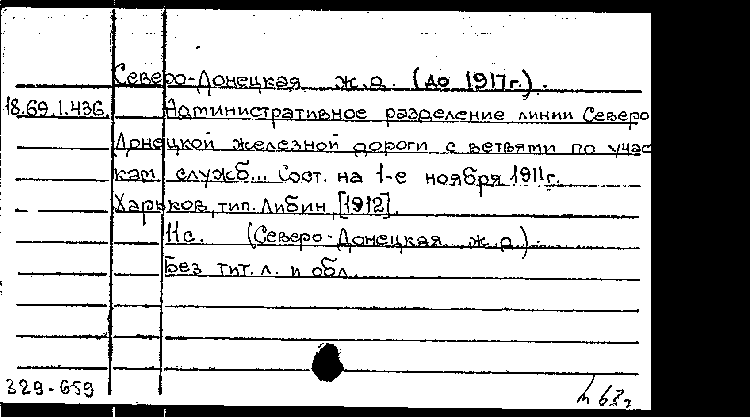 Северо-Донецкая ж.д. (до 1917г.).
18.69.1.436.
Административное разделение линии Северо
Донецкой железной дороги с ветвями по учас
кам служб... Сост. на 1-е ноября 1911г.
Харьков, тип. Либин, [1912].
11с. (Северо-Донецкая ж.д.).
Без тит. л. и обл.
329-659